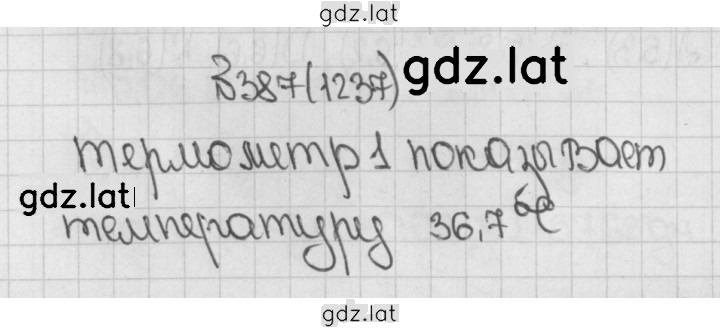 gdz.lat
№387(1237) gdz.lat
термометр 1 показывает
gdz.lat
температуру 36,7°C
gdz.lat